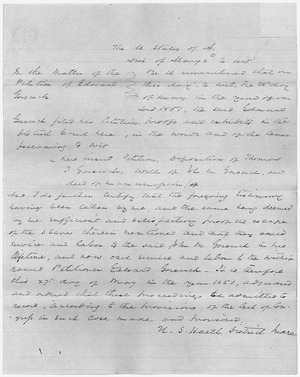 The U States of A,
Dist of Maryld to wit
In the Matter of the Be it remembered that on
Petition of Edward this day, to wit, the 27 day
Gorsuch of May in the year of our
Lord 1851, the said Edward
Gorsuch filed his Petition, Proofs and exhibits in the
District Court here, in the words and of the tenor
following to wit
(here insert Petition, deposition of Thomas
T. Gorsuch, Will of John M. Gorsuch, and
deed of manumission, of
And I do further certify that the foregoing testimony
having been taken by me and the same being deemed
by me sufficient and satisfactory proof of the escape
of the slaves therein mentioned and that they owed
service and labor to the said John M Gorsuch in his
lifetime, and now owe service and labor to the within
named Petitioner Edward Gorsuch. It is therefore
this 27th day of May in the year 1851, adjudged
and ordered that these proceedings be admitted to
record, according to the provisions of the act of Con-
gress in such case made and provided.
U. S. Heath District Judge